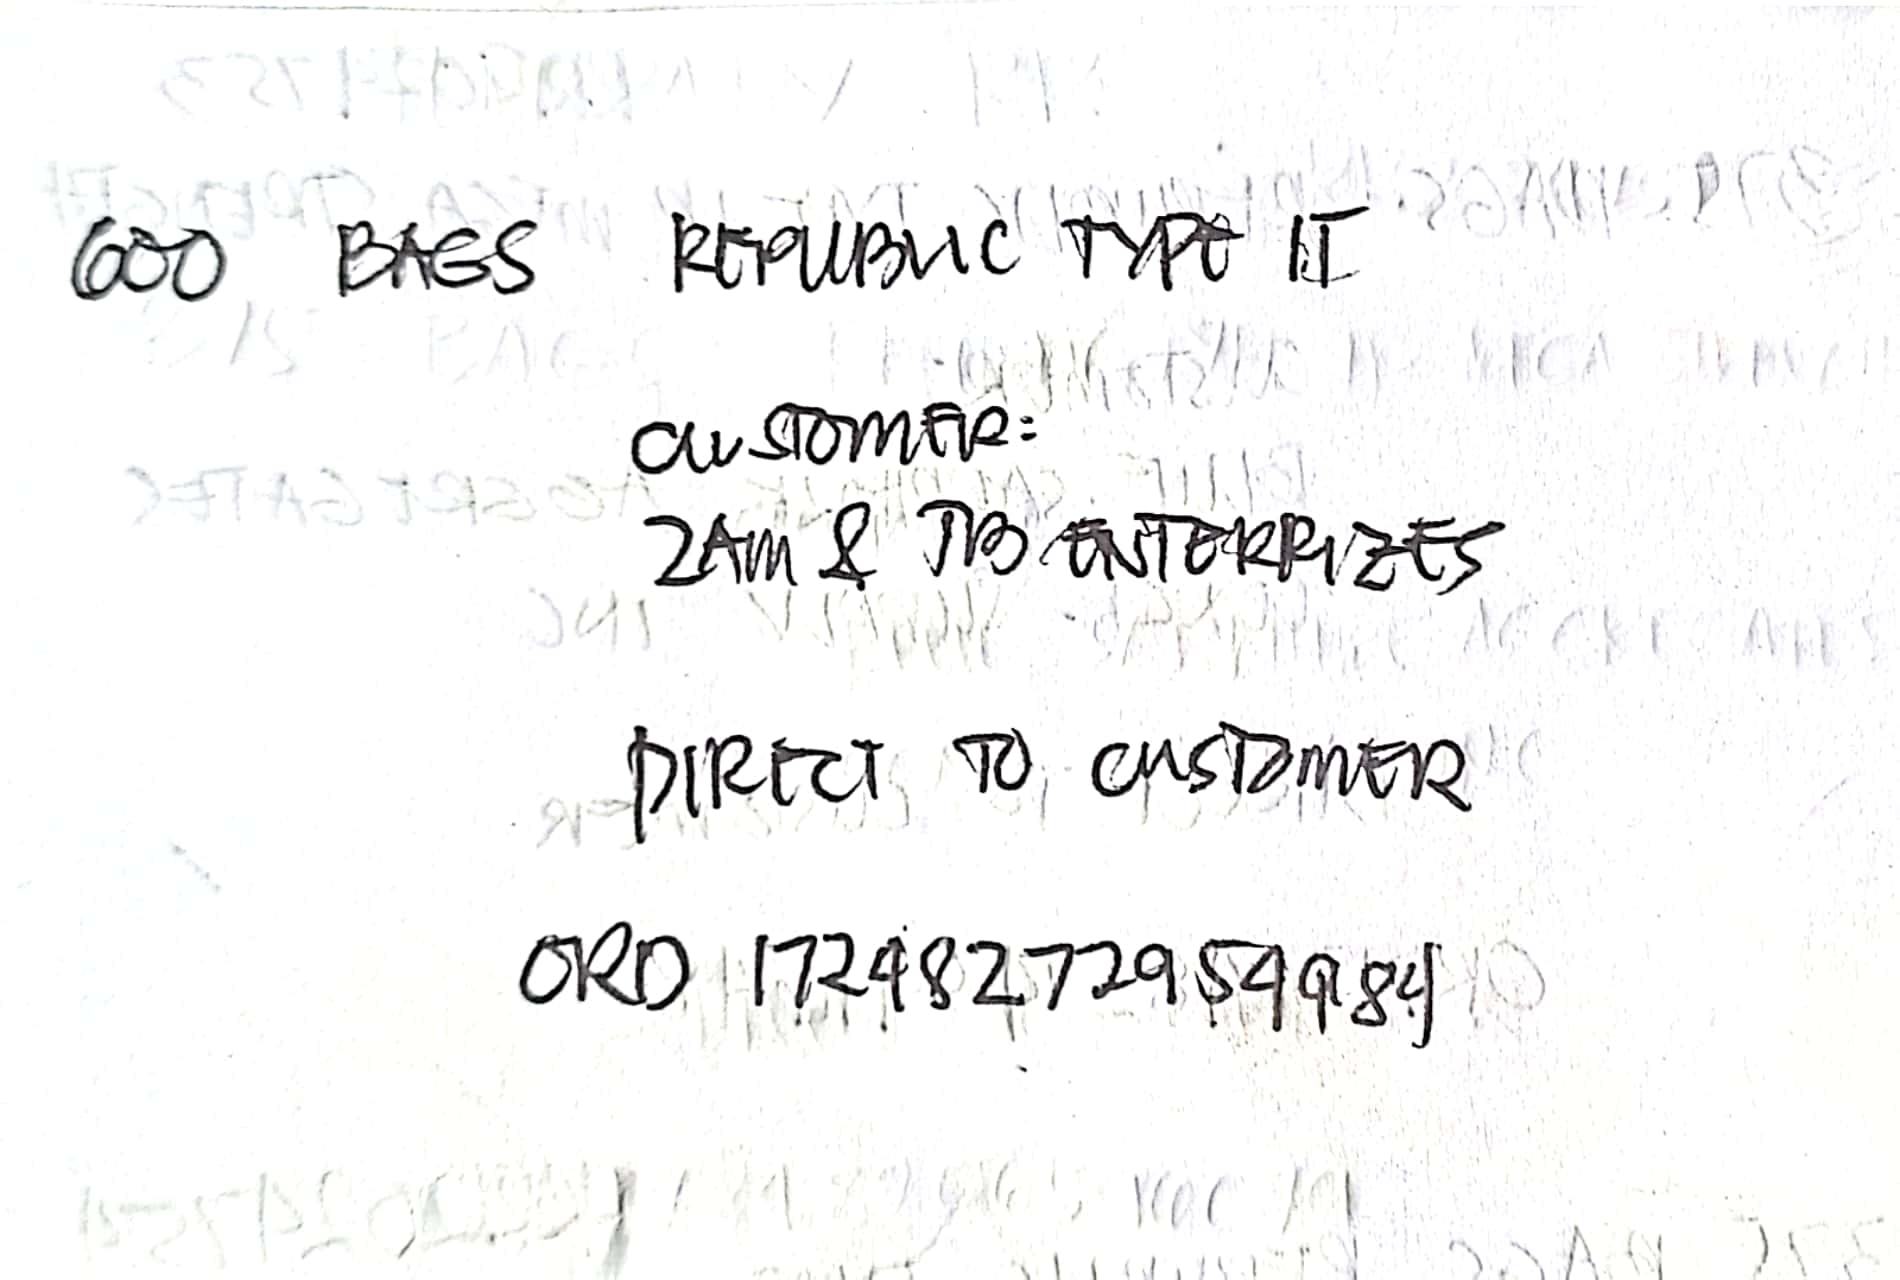 600 BAGS REPUBLIC TYPE II
CUSTOMER:
2AM & JB ENTERRRIZES
DIRECT TO CUSTOMER
ORD 17248272954984